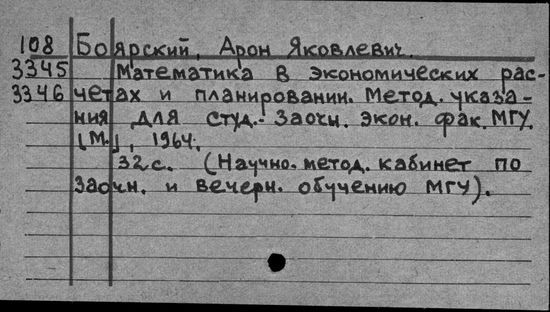 108 Боярский, Арон Яковлевич.
3345 Математика в экономических рас-
3346 четах и планировании. Метод. указа-
ния для студ.- заочн. экон. фак. МГУ.
[М.], 1964.
32с. (Научно. метод. кабинет по
заочн. и вечерн. обучению МГУ).